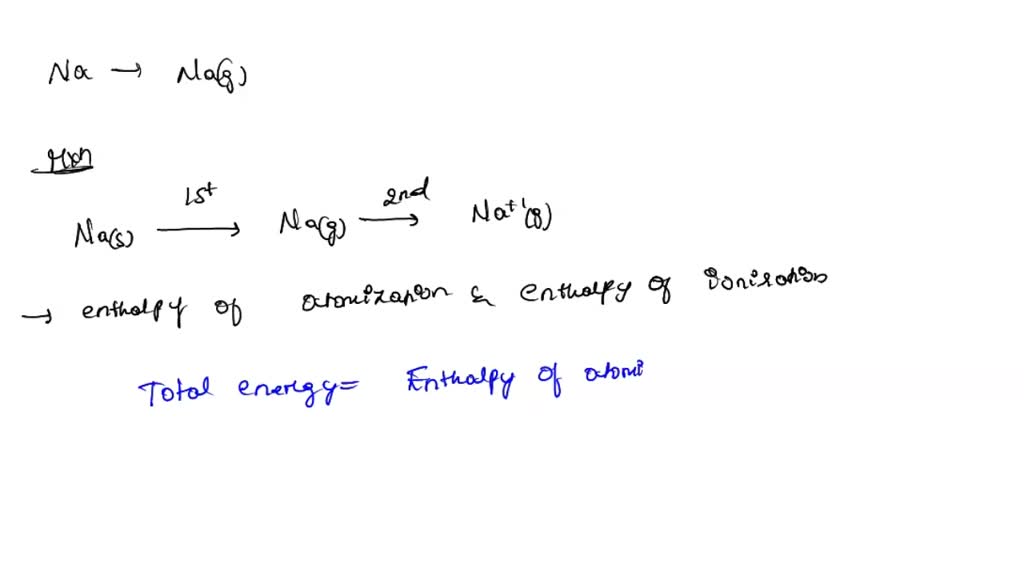 Na → Na(g)
Rxn
1st 2nd
Na(s) → Na(g) → Na+1(g)
→ enthalpy of atomization & enthalpy of Ionisation
Total energy = Enthalpy of atomi